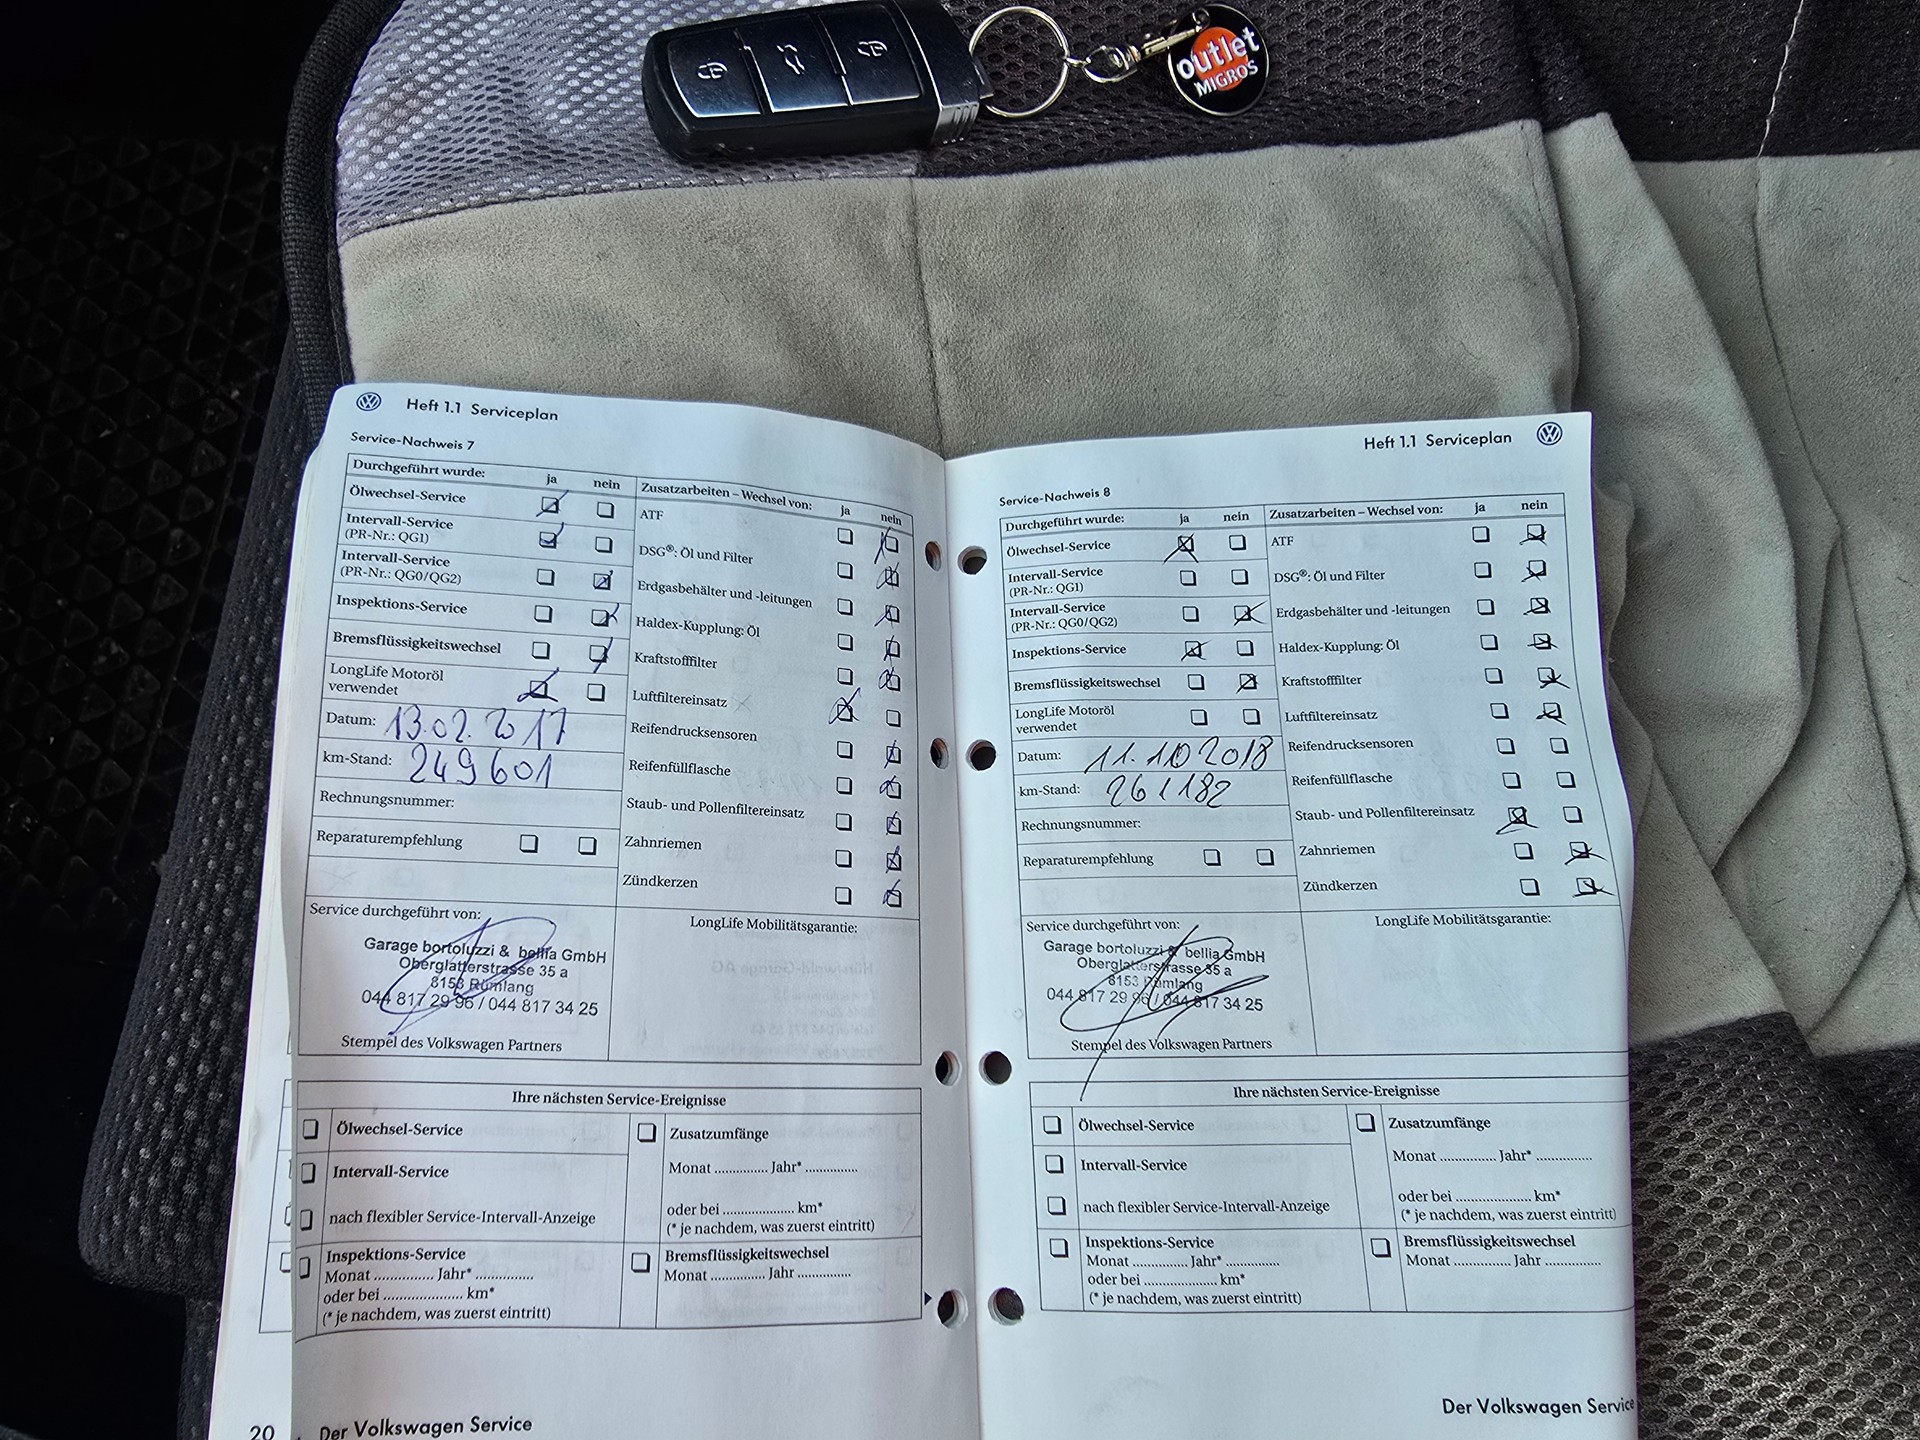 outlet
MIGROS
Heft 1.1 Serviceplan
Service-Nachweis 7
Durchgeführt wurde: ja nein
Ölwechsel-Service
Intervall-Service
(PR-Nr.: QG1)
Intervall-Service
(PR-Nr.: QG0/QG2)
Inspektions-Service
Bremsflüssigkeitswechsel
LongLife Motoröl
verwendet
Datum: 13.02.2017
km-Stand: 249 601
Rechnungsnummer:
Reparaturempfehlung
Zusatzarbeiten – Wechsel von: ja nein
ATF
DSG®: Öl und Filter
Erdgasbehälter und -leitungen
Haldex-Kupplung: Öl
Kraftstofffilter
Luftfiltereinsatz
Reifendrucksensoren
Reifenfüllflasche
Staub- und Pollenfiltereinsatz
Zahnriemen
Zündkerzen
Service durchgeführt von:
Garage bortoluzzi & bellia GmbH
Oberglatterstrasse 35 a
8153 Rümlang
044 817 29 96 / 044 817 34 25
Stempel des Volkswagen Partners
LongLife Mobilitätsgarantie:
Ihre nächsten Service-Ereignisse
Ölwechsel-Service
Intervall-Service
nach flexibler Service-Intervall-Anzeige
Inspektions-Service
Monat .............. Jahr* ..............
oder bei ...................... km*
(* je nachdem, was zuerst eintritt)
Zusatzumfänge
Monat ............. Jahr* .............
oder bei .................... km*
(* je nachdem, was zuerst eintritt)
Bremsflüssigkeitswechsel
Monat ............. Jahr .............
20 Der Volkswagen Service
Heft 1.1 Serviceplan
Service-Nachweis 8
Durchgeführt wurde: ja nein
Ölwechsel-Service
Intervall-Service
(PR-Nr.: QG1)
Intervall-Service
(PR-Nr.: QG0/QG2)
Inspektions-Service
Bremsflüssigkeitswechsel
LongLife Motoröl
verwendet
Datum: 11.10 2018
km-Stand: 261182
Rechnungsnummer:
Reparaturempfehlung
Zusatzarbeiten – Wechsel von: ja nein
ATF
DSG®: Öl und Filter
Erdgasbehälter und -leitungen
Haldex-Kupplung: Öl
Kraftstofffilter
Luftfiltereinsatz
Reifendrucksensoren
Reifenfüllflasche
Staub- und Pollenfiltereinsatz
Zahnriemen
Zündkerzen
Service durchgeführt von:
Garage bortoluzzi & bellia GmbH
Oberglatterstrasse 35 a
8153 Rümlang
044 817 29 96 / 044 817 34 25
Stempel des Volkswagen Partners
LongLife Mobilitätsgarantie:
Ihre nächsten Service-Ereignisse
Ölwechsel-Service
Intervall-Service
nach flexibler Service-Intervall-Anzeige
Inspektions-Service
Monat ............. Jahr* .............
oder bei .................... km*
(* je nachdem, was zuerst eintritt)
Zusatzumfänge
Monat ............. Jahr* .............
oder bei .................... km*
(* je nachdem, was zuerst eintritt)
Bremsflüssigkeitswechsel
Monat ............. Jahr .............
Der Volkswagen Service